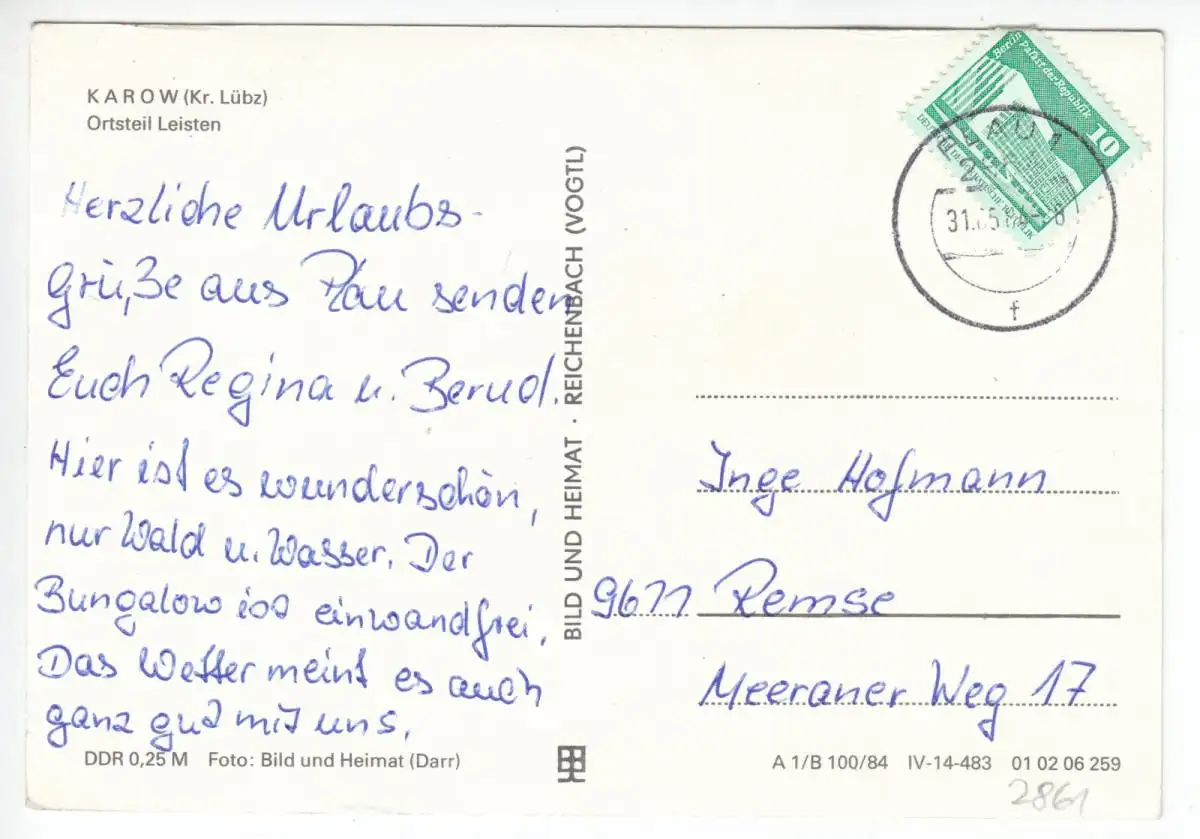 KAROW (Kr. Lübz)
Ortsteil Leisten
Herzliche Urlaubs-
grüße aus Plau senden
Euch Regina u. Bernd.
Hier ist es wunderschön,
nur Wald u. Wasser. Der
Bungalow ist einwandfrei,
Das Wetter meint es auch
ganz gut mit uns.
DDR 0,25 M Foto: Bild und Heimat (Darr)
BILD UND HEIMAT · REICHENBACH (VOGTL)
Berlin
Palast der Republik
10
31.
f
Inge Hofmann
9611 Remse
Meeraner Weg 17
A 1/B 100/84 IV-14-483 01 02 06 259
2861